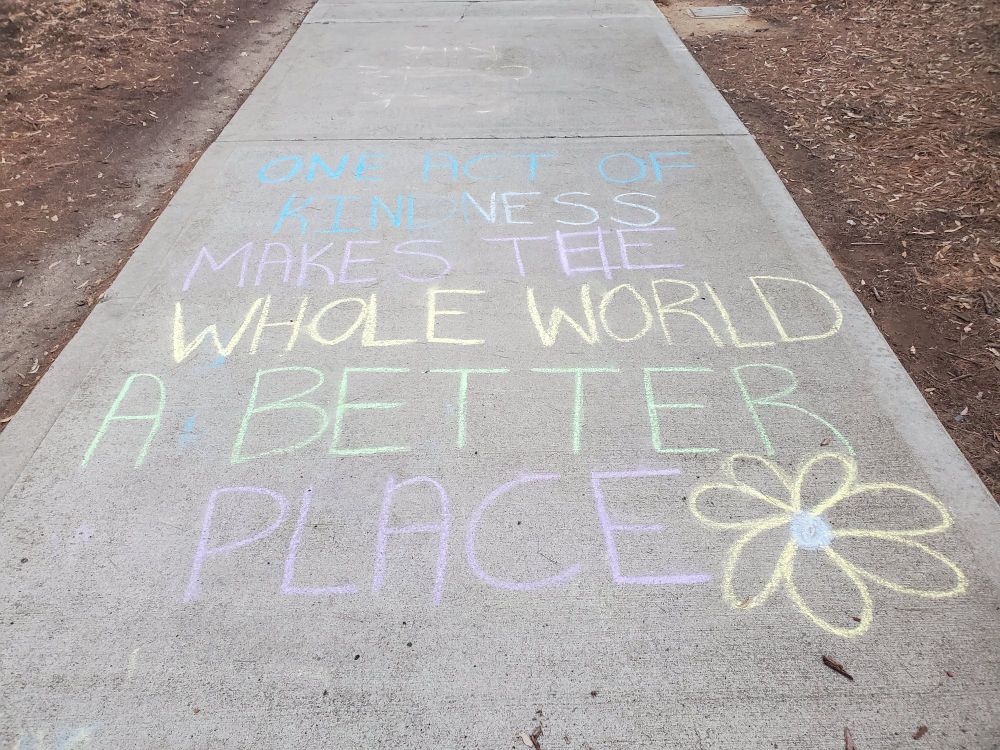 ONE ACT OF
KINDNESS
MAKES THE
WHOLE WORLD
A BETTER
PLACE